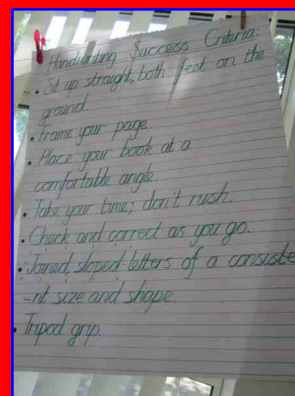 Handwriting Success Criteria:
• Sit up straight, both feet on the
ground.
• Frame your page.
• Place your book at a
comfortable angle.
• Take your time; don't rush.
• Check and correct as you go.
• Joined, sloped letters of a consiste
-nt size and shape.
• Tripod grip.